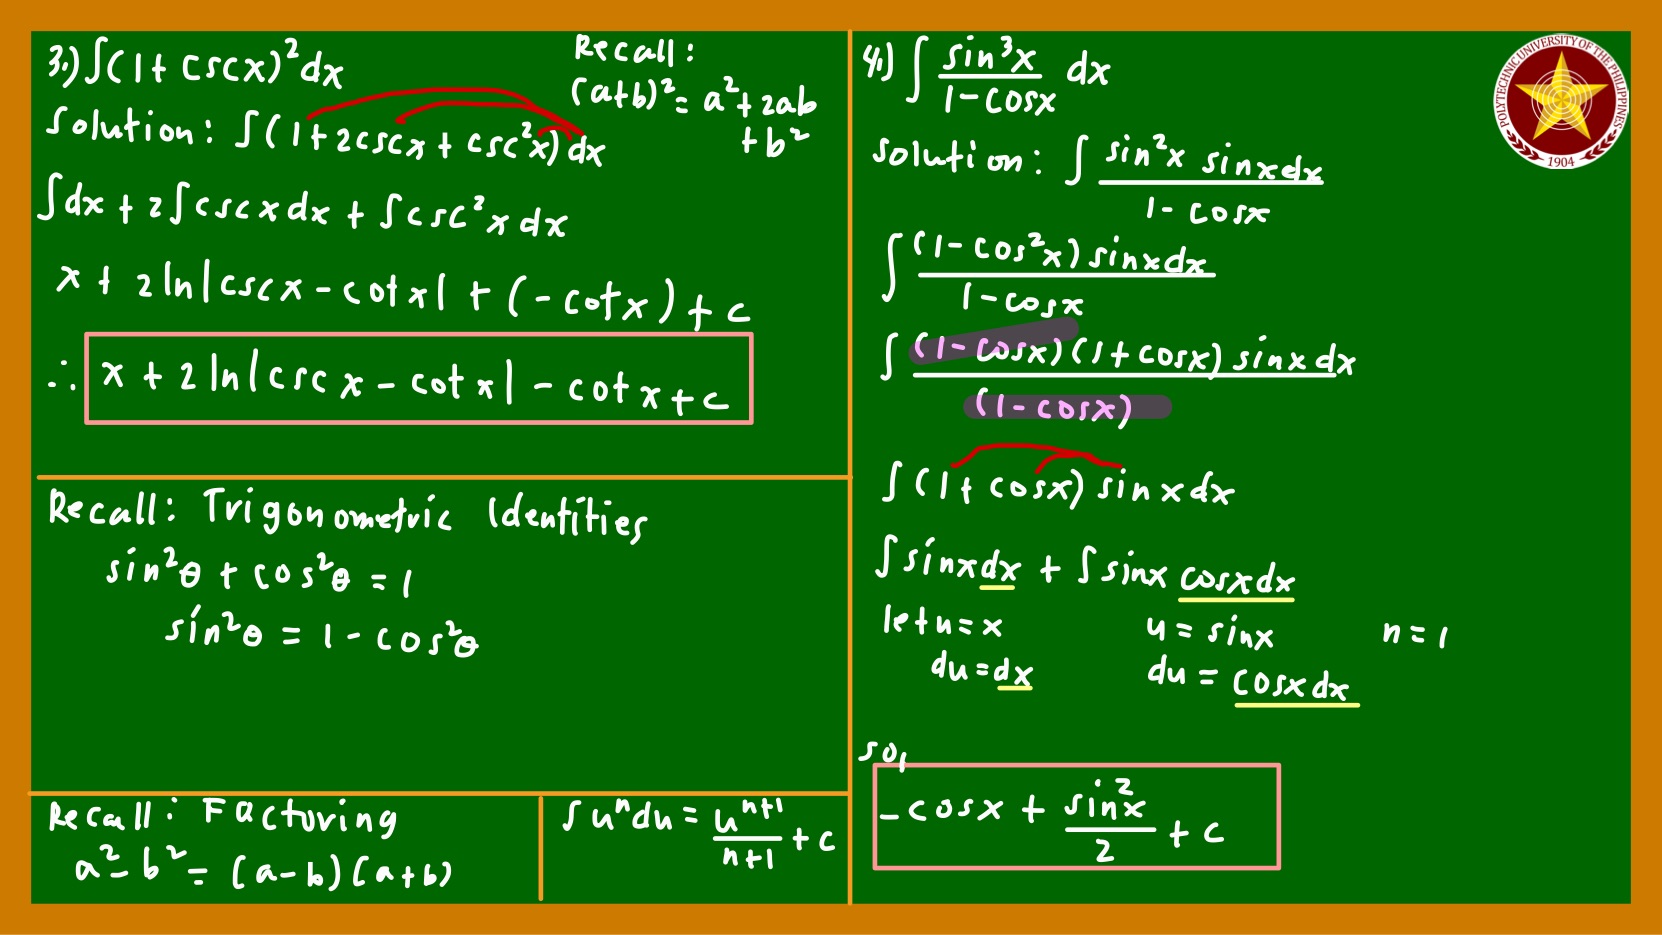 3.) ∫(1+cscx)²dx
Recall:
(a+b)² = a²+2ab
+b²
Solution: ∫(1+2cscx+csc²x)dx
∫dx + 2∫cscxdx + ∫csc²xdx
x + 2ln|cscx - cotx| + (-cotx) + c
∴ x + 2ln|cscx - cotx| - cotx + c
Recall: Trigonometric Identities
sin²θ + cos²θ = 1
sin²θ = 1 - cos²θ
Recall: Factoring
a² - b² = (a-b)(a+b)
∫uⁿdu = uⁿ⁺¹/n+1 + c
4.) ∫ sin³x/1-cosx dx
solution: ∫ sin²x sinxdx/1-cosx
∫ (1-cos²x)sinxdx/1-cosx
∫ (1-cosx)(1+cosx)sinxdx/(1-cosx)
∫(1+cosx)sinxdx
∫sinxdx + ∫sinx cosxdx
let u=x u=sinx n=1
du=dx du=cosxdx
so,
-cosx + sin²x/2 + c
POLYTECHNIC UNIVERSITY OF THE PHILIPPINES
1904